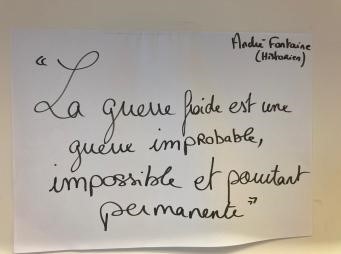 André Fontaine
(Historien)
" La guerre froide est une
guerre improbable,
impossible et pourtant
permanente "